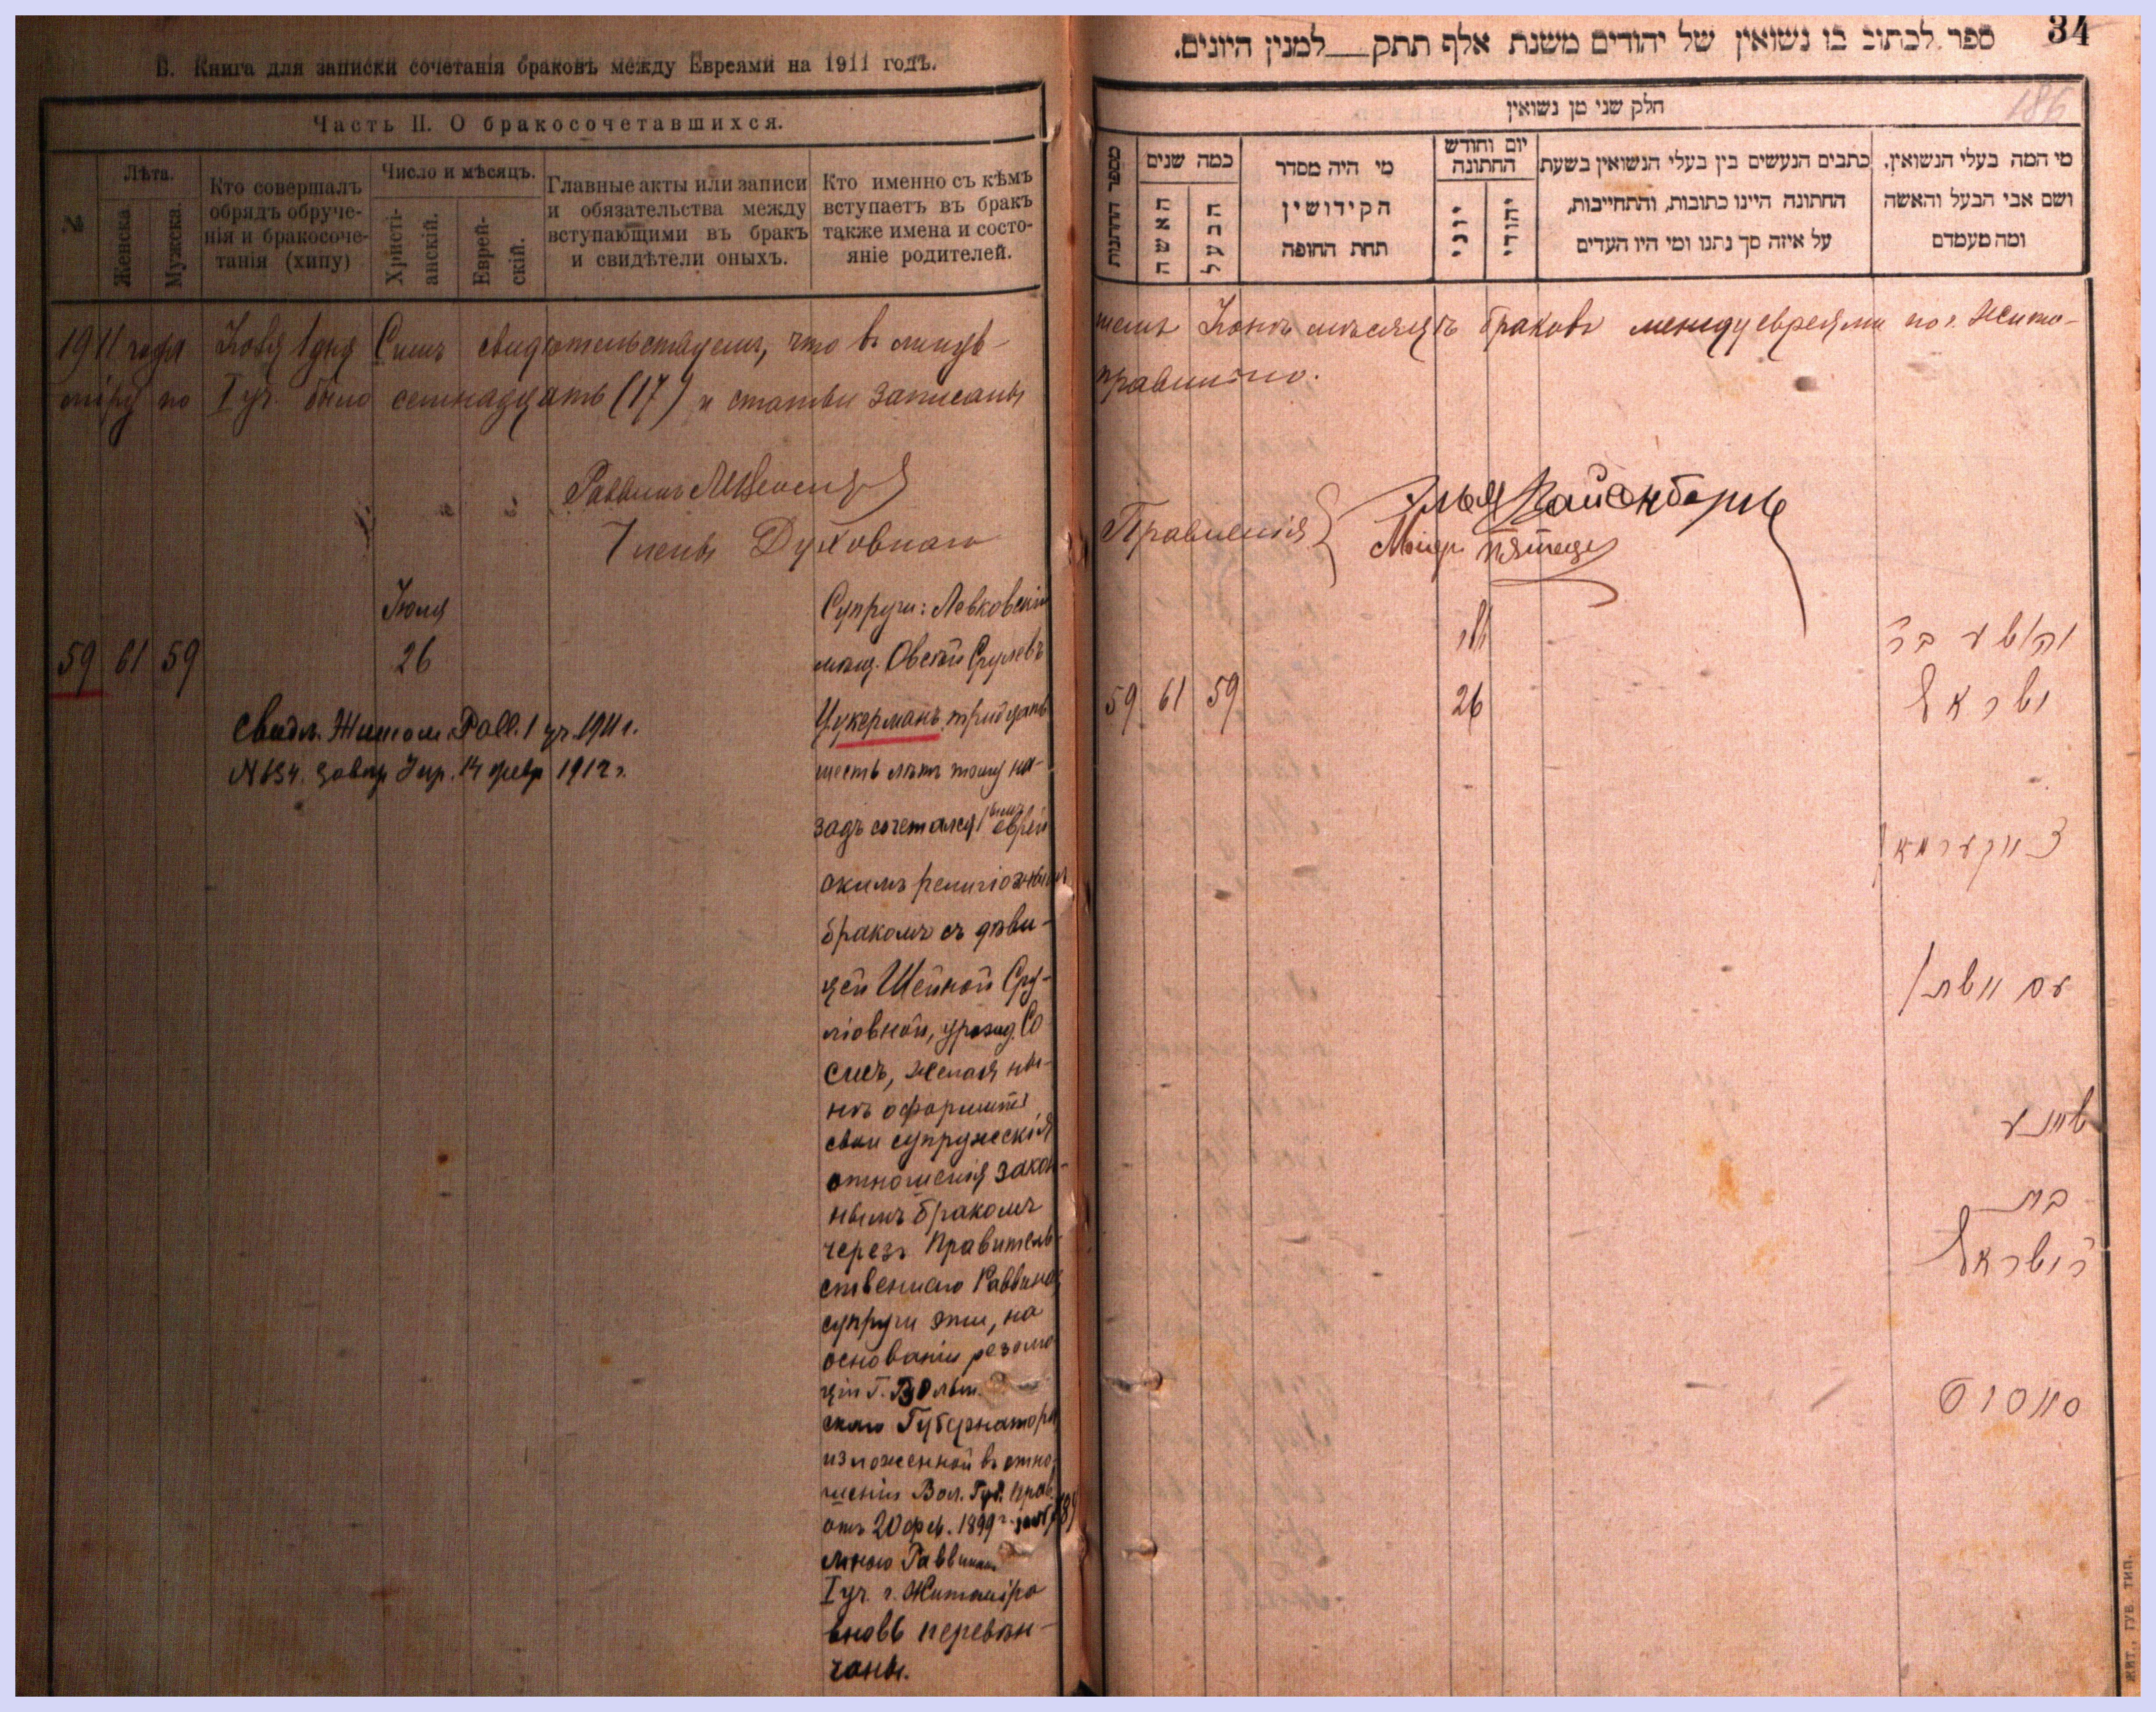 В. Книга для записки сочетанія браковъ между Евреями на 1911 годъ.
Часть II. О бракосочетавшихся.
№
Лѣта.
Женска.
Мужска.
Кто совершалъ
обрядъ обруче-
нія и бракосоче-
танія (хипу)
Число и мѣсяцъ.
Христі-
анскій.
Еврей-
скій.
Главные акты или записи
и обязательства между
вступающими въ бракъ
и свидѣтели оныхъ.
Кто именно съ кѣмъ
вступаетъ въ бракъ
также имена и состо-
яніе родителей.
1911 года 1 дня Симъ свидѣтельствуемъ, что въ минув-
міру по I уч. было семнадцать (17) и статьи записаны
Раввинъ
Члены Духовнаго
Іюля
59 61 59 26
Свидѣт. Житом. Равв. 1 уч. 1911 г.
14 февр 1912 г.
Супруги: Левковскій
мѣщ. Овсей Срулевъ
Цукерманъ тридцать
шесть лѣтъ тому на-
задъ сочетался еврей
скимъ религіознымъ
бракомъ съ дѣви-
цей Шейной Сру-
ліовной, урожд. Со
съ, желая ны-
нѣ оформить
свои супружескія
отношенія закон-
нымъ бракомъ
черезъ Правитель-
ственнаго Раввина,
супруги эти, на
основаніи резолю
ціи Г. Волын.
скаго Губернатора
изложенной въ отно-
шеніи Вол. Губ. Прав.
отъ 20 фев. 1899 г.
мною Раввиномъ
I уч. г. Житоміра
вновь перевѣн-
чаны.
34
ספר לכתוב בו נשואין של יהודים משנת אלף תתק__למנין היונים.
186
חלק שני מן נשואין
מי המה בעלי הנשואין,
ושם אבי הבעל והאשה
ומה מעמדם
כתבים הנעשים בין בעלי הנשואין בשעת
החתונה היינו כתובות, והתחייבות,
על איזה סך נתנו ומי היו העדים
יום וחודש
החתונה
יהודי
יוני
מי היה מסדר
הקידושין
תחת החופה
כמה שנים
הבעל
האשה
шемъ мѣсяцѣ браковъ между евреями по г. Жито-
правильно.
Правленія
59 61 59 26
יהושע בר
ישראל
צוקערמאן
עם
שיינע
בת
ר ישראל
жит., губ. тип.